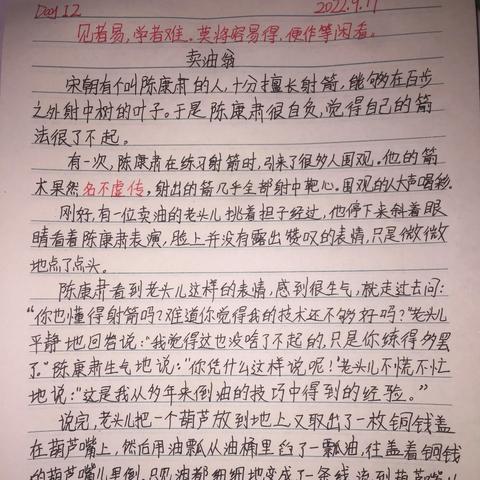 Day 12 2022.9.17
见者易，学者难。莫将容易得，便作等闲看。
卖油翁
宋朝有个叫陈康肃的人，十分擅长射箭，能够在百步
之外射中树的叶子。于是陈康肃很自负，觉得自己的箭
法很了不起。
有一次，陈康肃在练习射箭时，引来了很多人围观。他的箭
术果然名不虚传，射出的箭几乎全部射中靶心。围观的人大声喝彩。
刚好，有一位卖油的老头儿挑着担子经过，他停下来斜着眼
睛看着陈康肃表演，脸上并没有露出赞叹的表情，只是微微
地点了点头。
陈康肃看到老头儿这样的表情，感到很生气，就走过去问：
“你也懂得射箭吗？难道你觉得我的技术还不够好吗？”老头儿
平静地回答说：“我觉得这也没啥了不起的，只是你练得多罢
了。”陈康肃生气地说：“你凭什么这样说呢！”老头儿不慌不忙
地说：“这是我从多年来倒油的技巧中得到的经验。”
说完，老头儿把一个葫芦放到地上，又取出了一枚铜钱盖
在葫芦嘴上，然后用油瓢从油桶里舀了一瓢油，往盖着铜钱
的葫芦嘴儿里倒，只见油都细细地变成了一条线，流到葫芦嘴